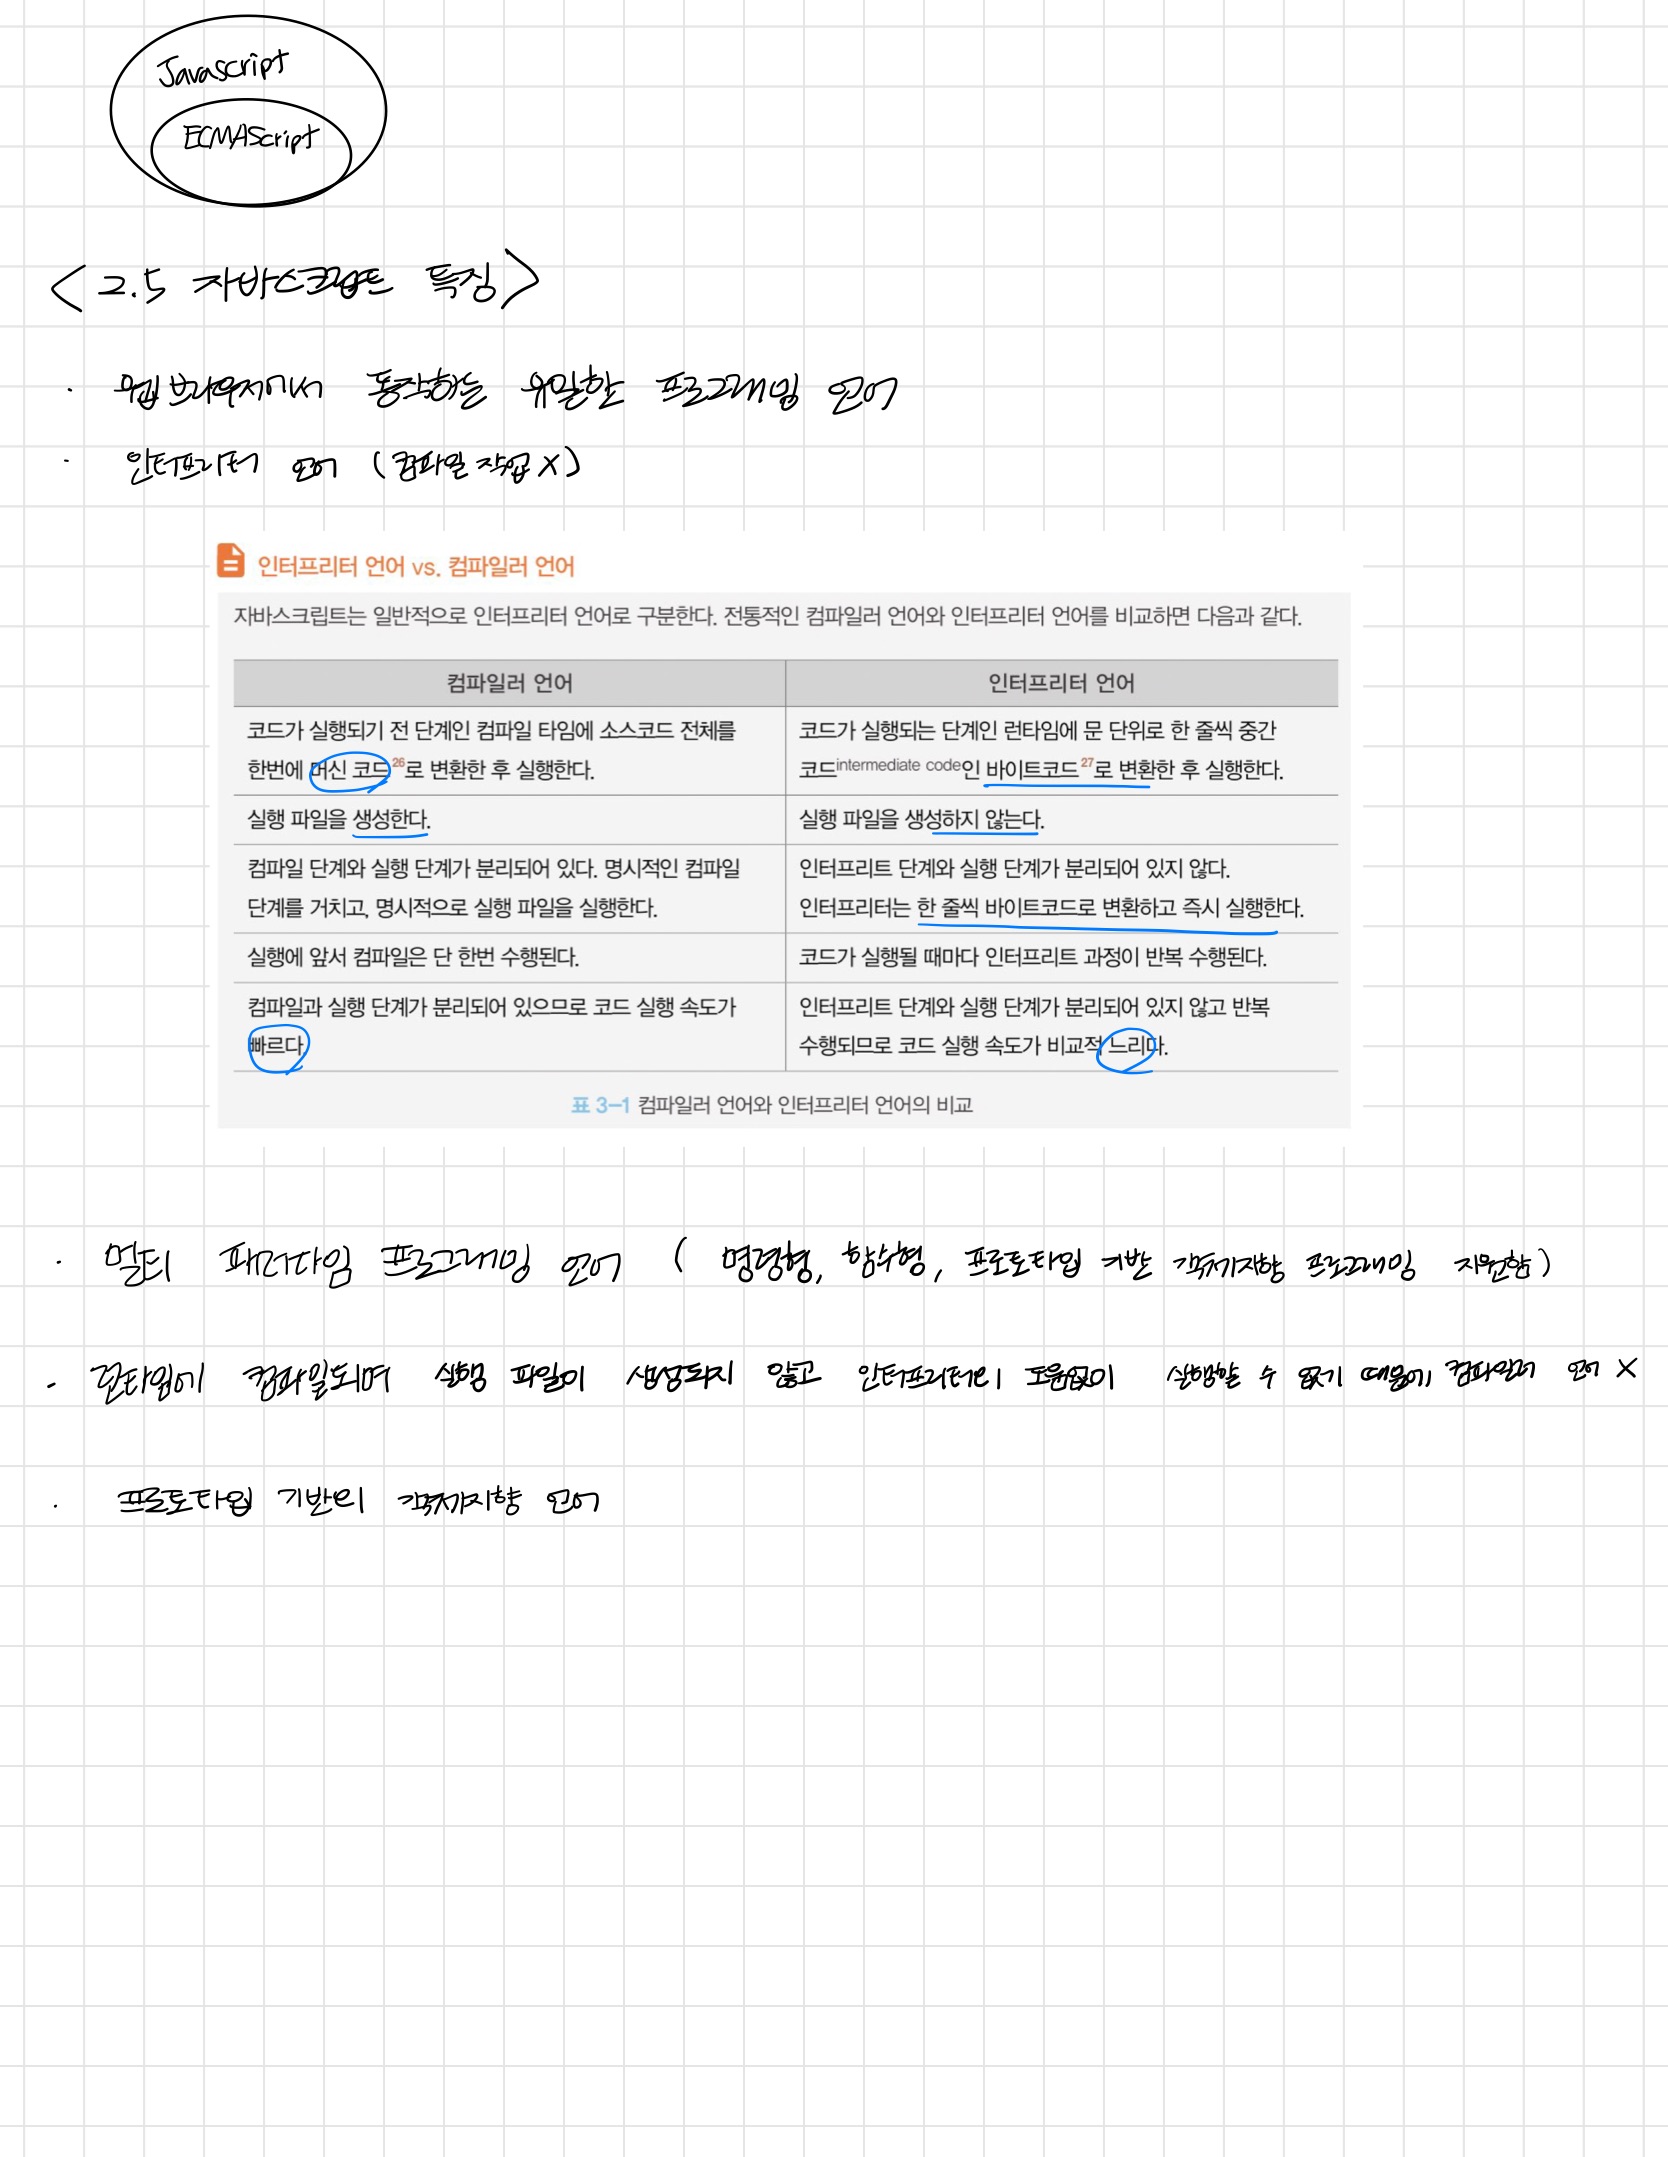 Javascript
ECMAScript
< 2.5 자바스크립트 특징 >
· 웹 브라우저에서 동작하는 유일한 프로그래밍 언어
· 인터프리터 언어 (컴파일 작업 X)
인터프리터 언어 vs. 컴파일러 언어
자바스크립트는 일반적으로 인터프리터 언어로 구분한다. 전통적인 컴파일러 언어와 인터프리터 언어를 비교하면 다음과 같다.
컴파일러 언어
인터프리터 언어
코드가 실행되기 전 단계인 컴파일 타임에 소스코드 전체를
한번에 머신 코드26로 변환한 후 실행한다.
코드가 실행되는 단계인 런타임에 문 단위로 한 줄씩 중간
코드intermediate code인 바이트코드27로 변환한 후 실행한다.
실행 파일을 생성한다.
실행 파일을 생성하지 않는다.
컴파일 단계와 실행 단계가 분리되어 있다. 명시적인 컴파일
단계를 거치고, 명시적으로 실행 파일을 실행한다.
인터프리트 단계와 실행 단계가 분리되어 있지 않다.
인터프리터는 한 줄씩 바이트코드로 변환하고 즉시 실행한다.
실행에 앞서 컴파일은 단 한번 수행된다.
코드가 실행될 때마다 인터프리트 과정이 반복 수행된다.
컴파일과 실행 단계가 분리되어 있으므로 코드 실행 속도가
빠르다.
인터프리트 단계와 실행 단계가 분리되어 있지 않고 반복
수행되므로 코드 실행 속도가 비교적 느리다.
표 3-1 컴파일러 언어와 인터프리터 언어의 비교
· 멀티 패러다임 프로그래밍 언어 ( 명령형, 함수형, 프로토타입 기반 객체지향 프로그래밍 지원함 )
· 런타임에 컴파일되며 실행 파일이 생성되지 않고 인터프리터의 도움없이 실행할 수 없기 때문에 컴파일러 언어 X
· 프로토타입 기반의 객체지향 언어